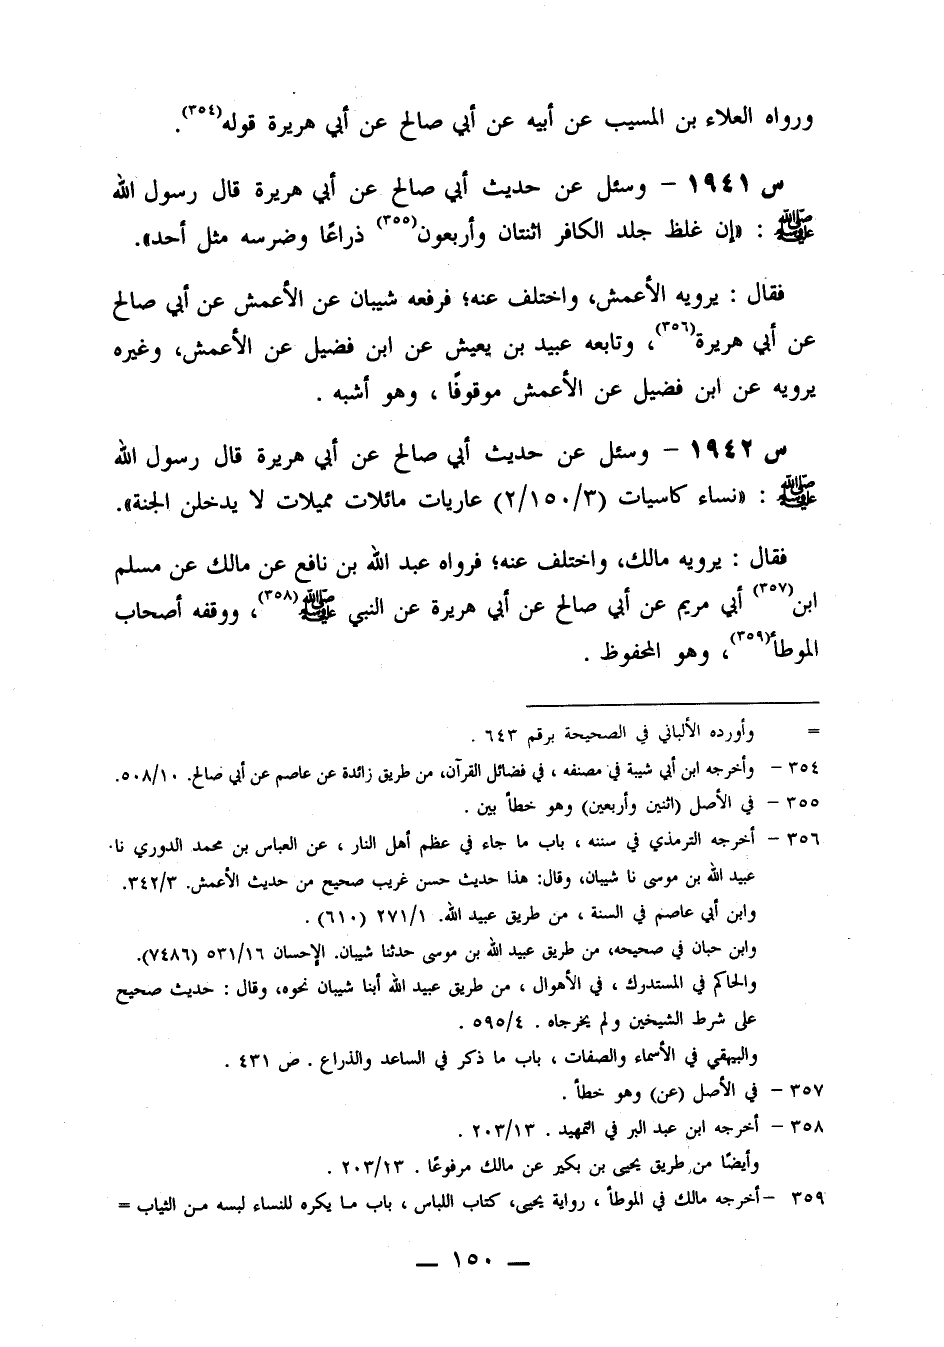 ورواه العلاء بن المسيب عن أبيه عن أبي صالح عن أبي هريرة قوله(٣٥٤).
س ١٩٤١ – وسئل عن حديث أبي صالح عن أبي هريرة قال رسول الله
ﷺ : «إن غلظ جلد الكافر اثنتان وأربعون(٣٥٥) ذراعًا وضرسه مثل أحد».
فقال : يرويه الأعمش، واختلف عنه؛ فرفعه شيبان عن الأعمش عن أبي صالح
عن أبي هريرة(٣٥٦)، وتابعه عبيد بن يعيش عن ابن فضيل عن الأعمش، وغيره
يرويه عن ابن فضيل عن الأعمش موقوفًا ، وهو أشبه .
س ١٩٤٢ – وسئل عن حديث أبي صالح عن أبي هريرة قال رسول الله
ﷺ : «نساء كاسيات (٢/١٥٠/٣) عاريات مائلات مميلات لا يدخلن الجنة».
فقال : يرويه مالك، واختلف عنه؛ فرواه عبد الله بن نافع عن مالك عن مسلم
ابن(٣٥٧) أبي مريم عن أبي صالح عن أبي هريرة عن النبي ﷺ(٣٥٨)، ووقفه أصحاب
الموطأ(٣٥٩)، وهو المحفوظ .
= وأورده الألباني في الصحيحة برقم ٦٤٣ .
٣٥٤ – وأخرجه ابن أبي شيبة في مصنفه ، في فضائل القرآن، من طريق زائدة عن عاصم عن أبي صالح. ٥٠٨/١٠.
٣٥٥ – في الأصل (اثنين وأربعين) وهو خطأ بين .
٣٥٦ – أخرجه الترمذي في سننه ، باب ما جاء في عظم أهل النار ، عن العباس بن محمد الدوري نا
عبيد الله بن موسى نا شيبان، وقال: هذا حديث حسن غريب صحيح من حديث الأعمش. ٣٤٢/٣.
وابن أبي عاصم في السنة ، من طريق عبيد الله. ٢٧١/١ (٦١٠) .
وابن حبان في صحيحه، من طريق عبيد الله بن موسى حدثنا شيبان. الإحسان ٥٣١/١٦ (٧٤٨٦).
والحاكم في المستدرك ، في الأهوال ، من طريق عبيد الله أبنا شيبان نحوه، وقال : حديث صحيح
على شرط الشيخين ولم يخرجاه . ٥٩٥/٤ .
والبيهقي في الأسماء والصفات ، باب ما ذكر في الساعد والذراع . ص ٤٣١ .
٣٥٧ – في الأصل (عن) وهو خطأ .
٣٥٨ – أخرجه ابن عبد البر في التمهيد . ٢٠٣/١٣ .
وأيضًا من طريق يحيى بن بكير عن مالك مرفوعًا . ٢٠٣/١٣ .
٣٥٩ –أخرجه مالك في الموطأ ، رواية يحيى، كتاب اللباس ، باب ما يكره للنساء لبسه من الثياب =
— ١٥٠ —